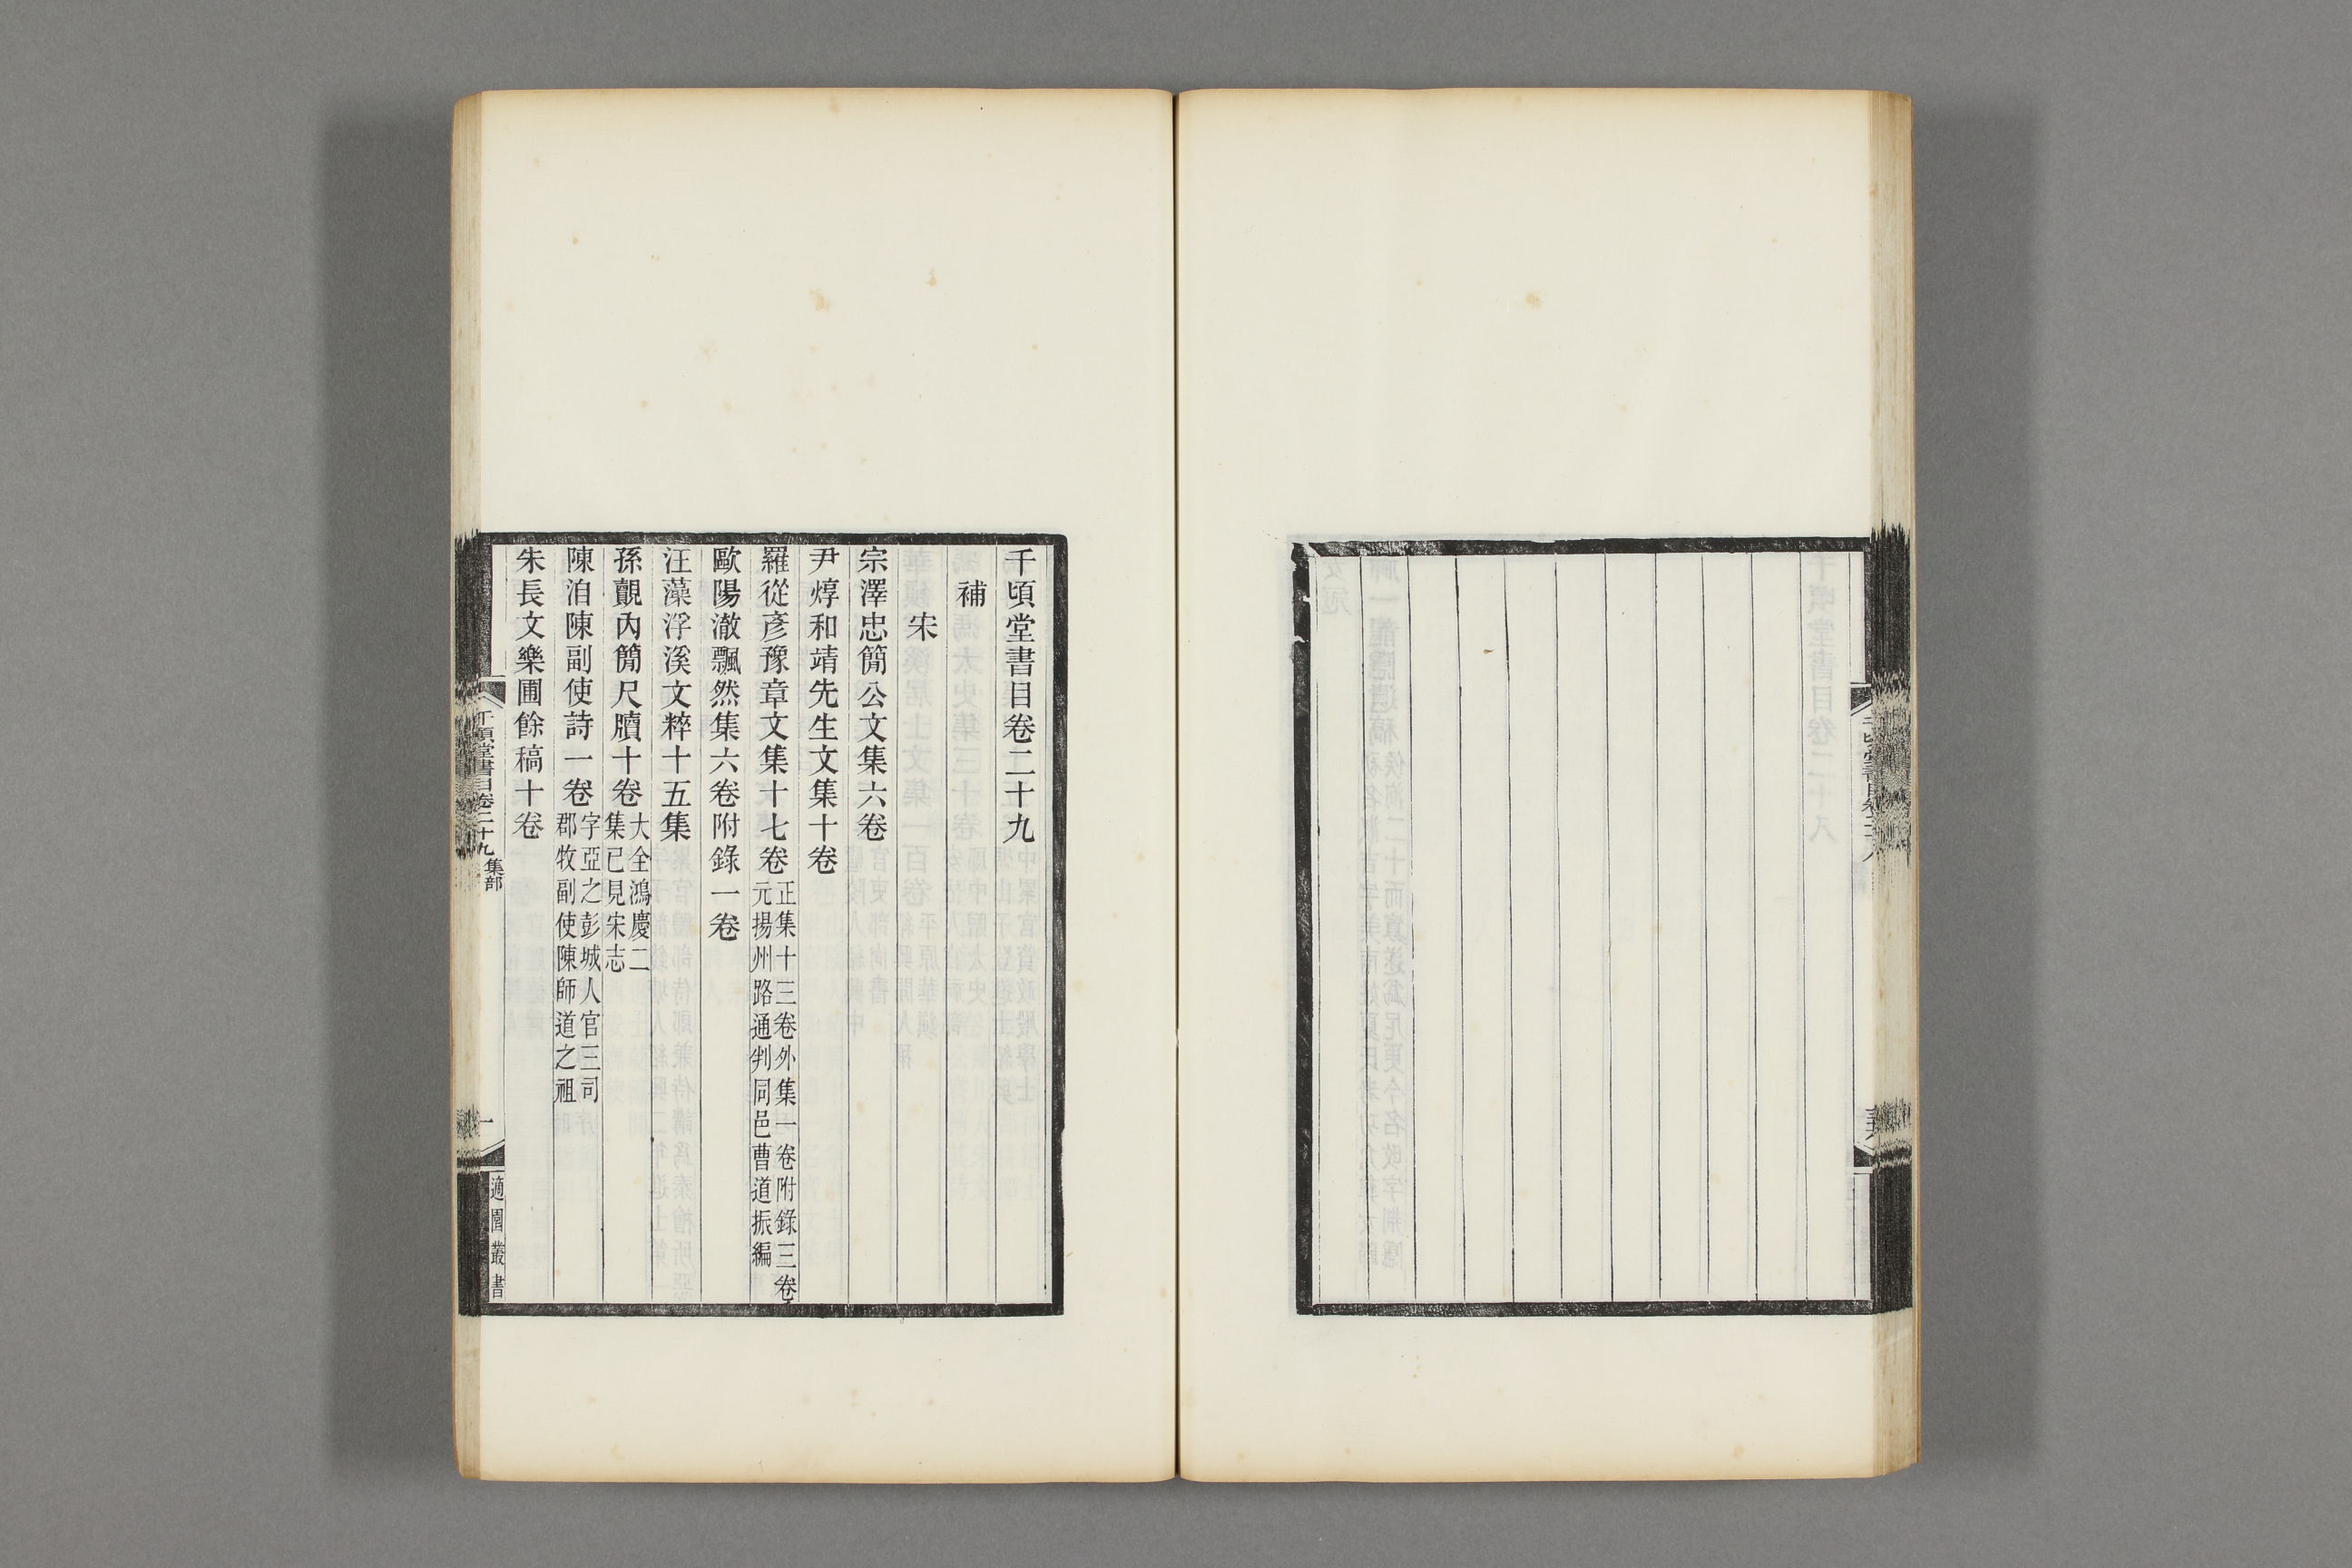 千頃堂書目卷二十九
補
宋
宗澤忠簡公文集六卷
尹焞和靖先生文集十卷
羅從彥豫章文集十七卷正集十三卷外集一卷附錄三卷
元揚州路通判同邑曹道振編
歐陽澈飄然集六卷附錄一卷
汪藻浮溪文粹十五集
孫覿內簡尺牘十卷大全鴻慶二
集已見宋志
陳洎陳副使詩一卷字亞之彭城人官三司
郡牧副使陳師道之祖
朱長文樂圃餘稿十卷
千頃堂書目卷二十九 集部
一
適園叢書